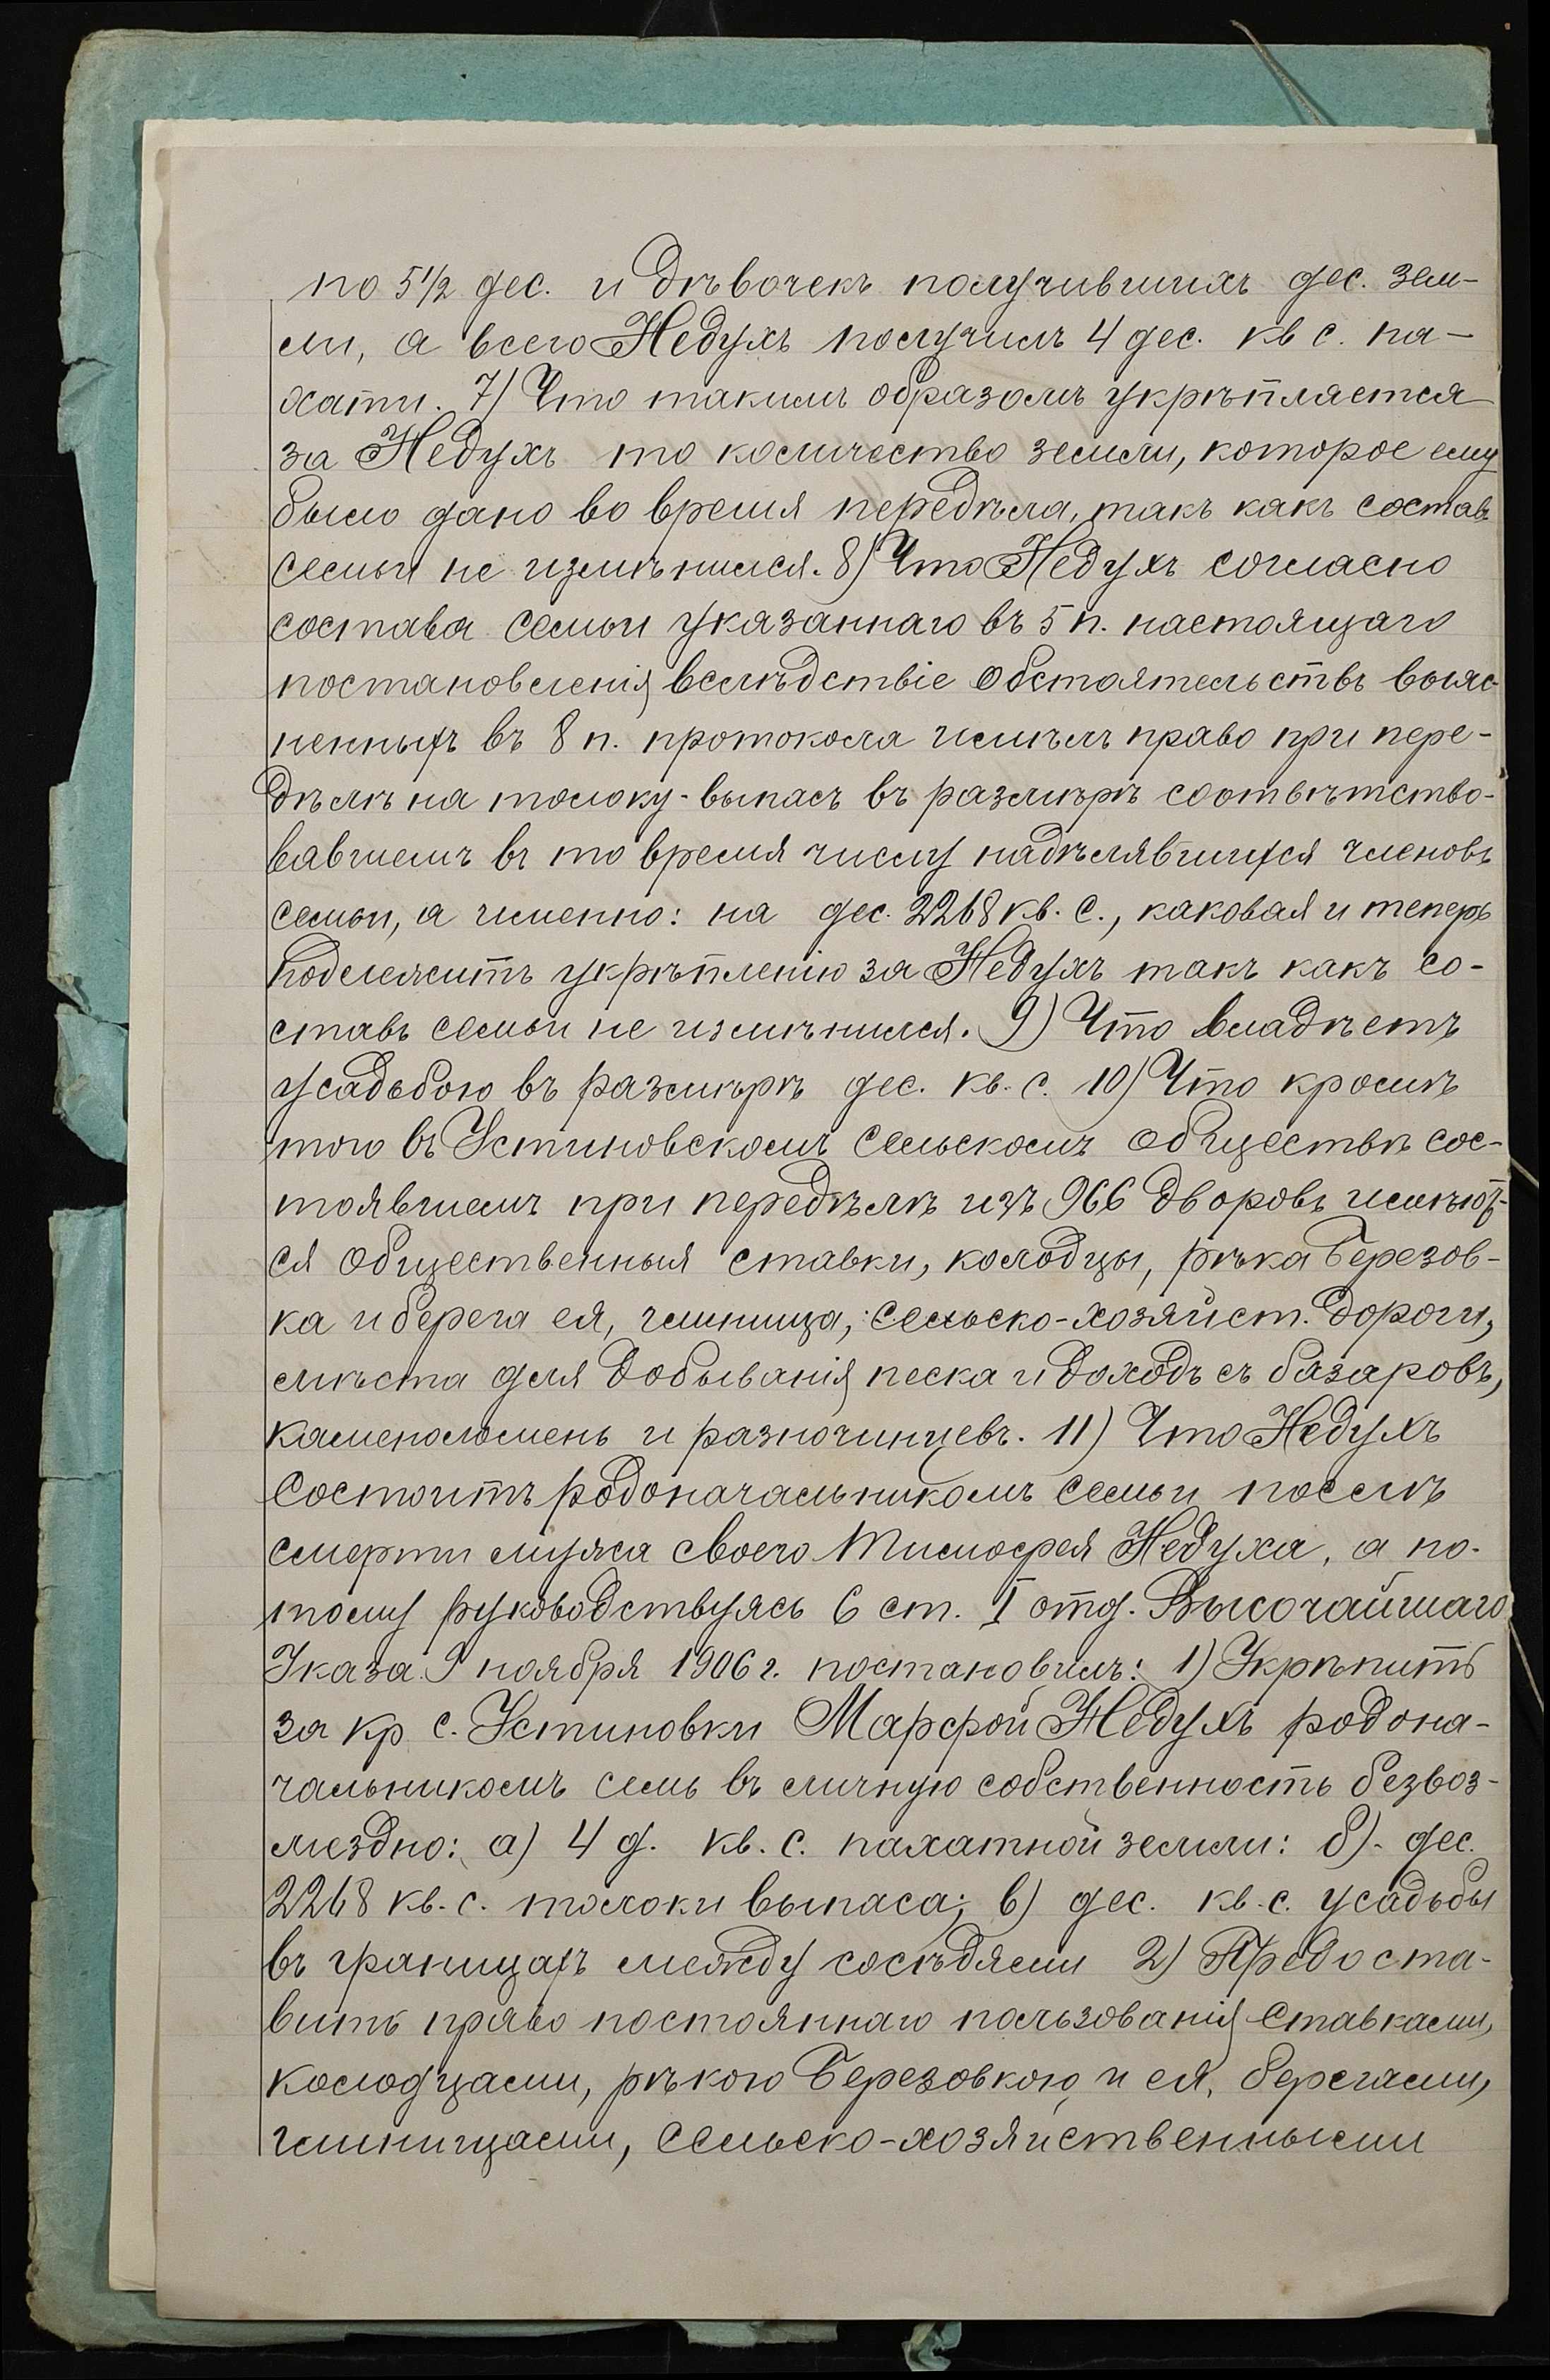 по 5 1/2 дес. и дѣвочекъ получившихъ дес. зем-
ли, а всего Недухъ получилъ 4 дес. кв с. па-
хати. 7) Что такимъ образомъ укрѣпляется
за Недухъ то количество земли, которое ему
было дано во время передѣла, такъ какъ составъ
семьи не измѣнился. 8) Что Недухъ согласно
состава семьи указаннаго въ 5 п. настоящаго
постановленія вслѣдствіе обстоятельствъ выяс-
ненныхъ въ 8 п. протокола имѣлъ право при пере-
дѣлѣ на толоку-выпасъ въ размѣрѣ соотвѣтство-
вавшемъ въ то время числу надѣлявшихся членовъ
семьи, а именно: на дес. 2268 кв. с., каковая и теперь
подлежитъ укрѣпленію за Недухъ такъ какъ со-
ставъ семьи не измѣнился. 9) Что владѣетъ
усадьбою въ размѣрѣ дес. кв. с. 10) Что кромѣ
того въ Устиновскомъ сельскомъ обществѣ сос-
тоявшемъ при передѣлѣ изъ 966 дворовъ имѣют-
ся общественныя ставки, колодцы, рѣка Березов-
ка и берега ея, глинища, сельско-хозяйст. дороги,
мѣста для добыванія песка и доходъ съ базаровъ,
каменоломень и разночинцевъ. 11) Что Недухъ
состоитъ родоначальникомъ семьи послѣ
смерти мужа своего Тимофея Недуха, а по-
тому руководствуясь 6 ст. I отд. Высочайшаго
Указа 9 ноября 1906 г. постановилъ: 1) Укрѣпить
за кр с. Устиновки Марфой Недухъ родона-
чальникомъ семь въ личную собственность безвоз-
мездно: а) 4 д. кв. с. пахатной земли: б)- дес.
2268 кв. с. толоки выпаса; в) дес. кв. с. усадьбы
въ границахъ между сосѣдями 2) Предоста-
вить право постояннаго пользованія ставками,
колодцами, рѣкою Березовкою и ея, берегами,
глинищами, сельско-хозяйственными